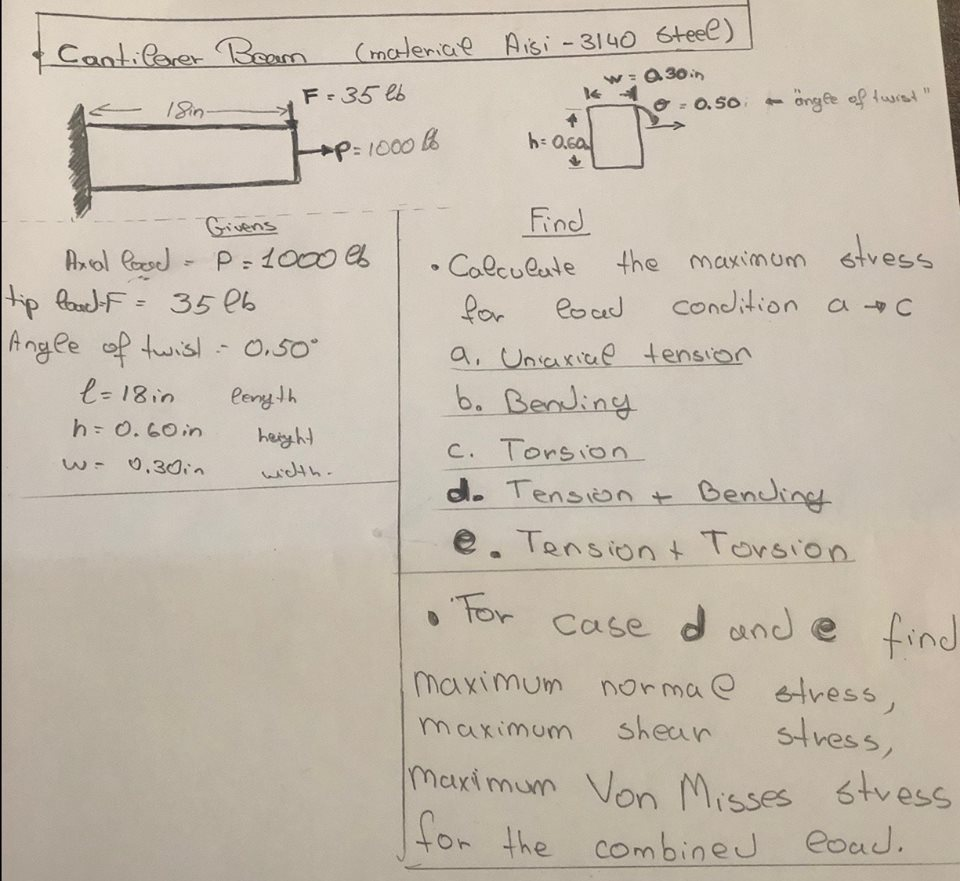 • Cantilever Beam (material Aisi - 3140 Steel)
18in
F = 35 lb
P = 1000 lb
w = 0.30in
θ = 0.50 ← "angle of twist"
h = 0.60
Givens
Axial load = P = 1000 lb
tip load F = 35 lb
Angle of twist = 0.50°
l = 18in length
h = 0.60in height
w = 0.30in width.
Find
• Calculate the maximum stress
for load condition a → c
a. Uniaxial tension
b. Bending
c. Torsion
d. Tension + Bending
e. Tension + Torsion
• For case d and e find
maximum normal stress,
maximum shear stress,
maximum Von Misses stress
for the combined load.